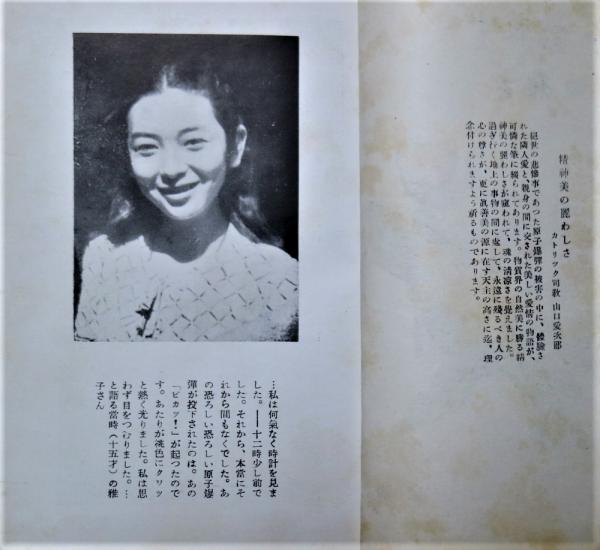 精神美の麗わしさ
カトリック司教 山口愛次郎
絶世の悲慘事であつた原子爆彈の被害の中に、體驗さ
れた隣人愛と、親身の間に交された美しい愛情の物語が、
可憐な筆に綴られてあります。物質界の自然美に勝る精
神美の麗わしさが窺われて、魂の淸凉さを覺えました。
過ぎ行く地上の事物の間に處して、永遠に殘るべき人の
心の尊さが、更に眞善美の源に在す天主の高さに迄、理
念付けられますよう祈るものであります。
…私は何氣なく時計を見ま
した。――十二時少し前で
した。それから、本當にそ
れから間もなくでした。あ
の恐ろしい恐ろしい原子爆
彈が投下されたのは。あの
「ピカッ！」が起つたので
す。あたりが桃色にクワッ
と熱く光りました。私は思
わず目をつむりました。…
と語る當時(十五才)の雅
子さん